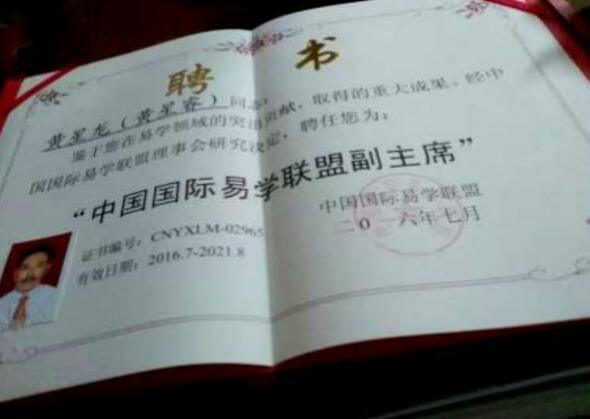 聘书
黄星龙（黄星睿）同志：
鉴于您在易学领域的突出贡献，取得的重大成果。经中
国国际易学联盟理事会研究决定，聘任您为：
“中国国际易学联盟副主席”
证书编号：CNYXLM-02965
有效日期：2016.7-2021.8
中国国际易学联盟
二〇一六年七月